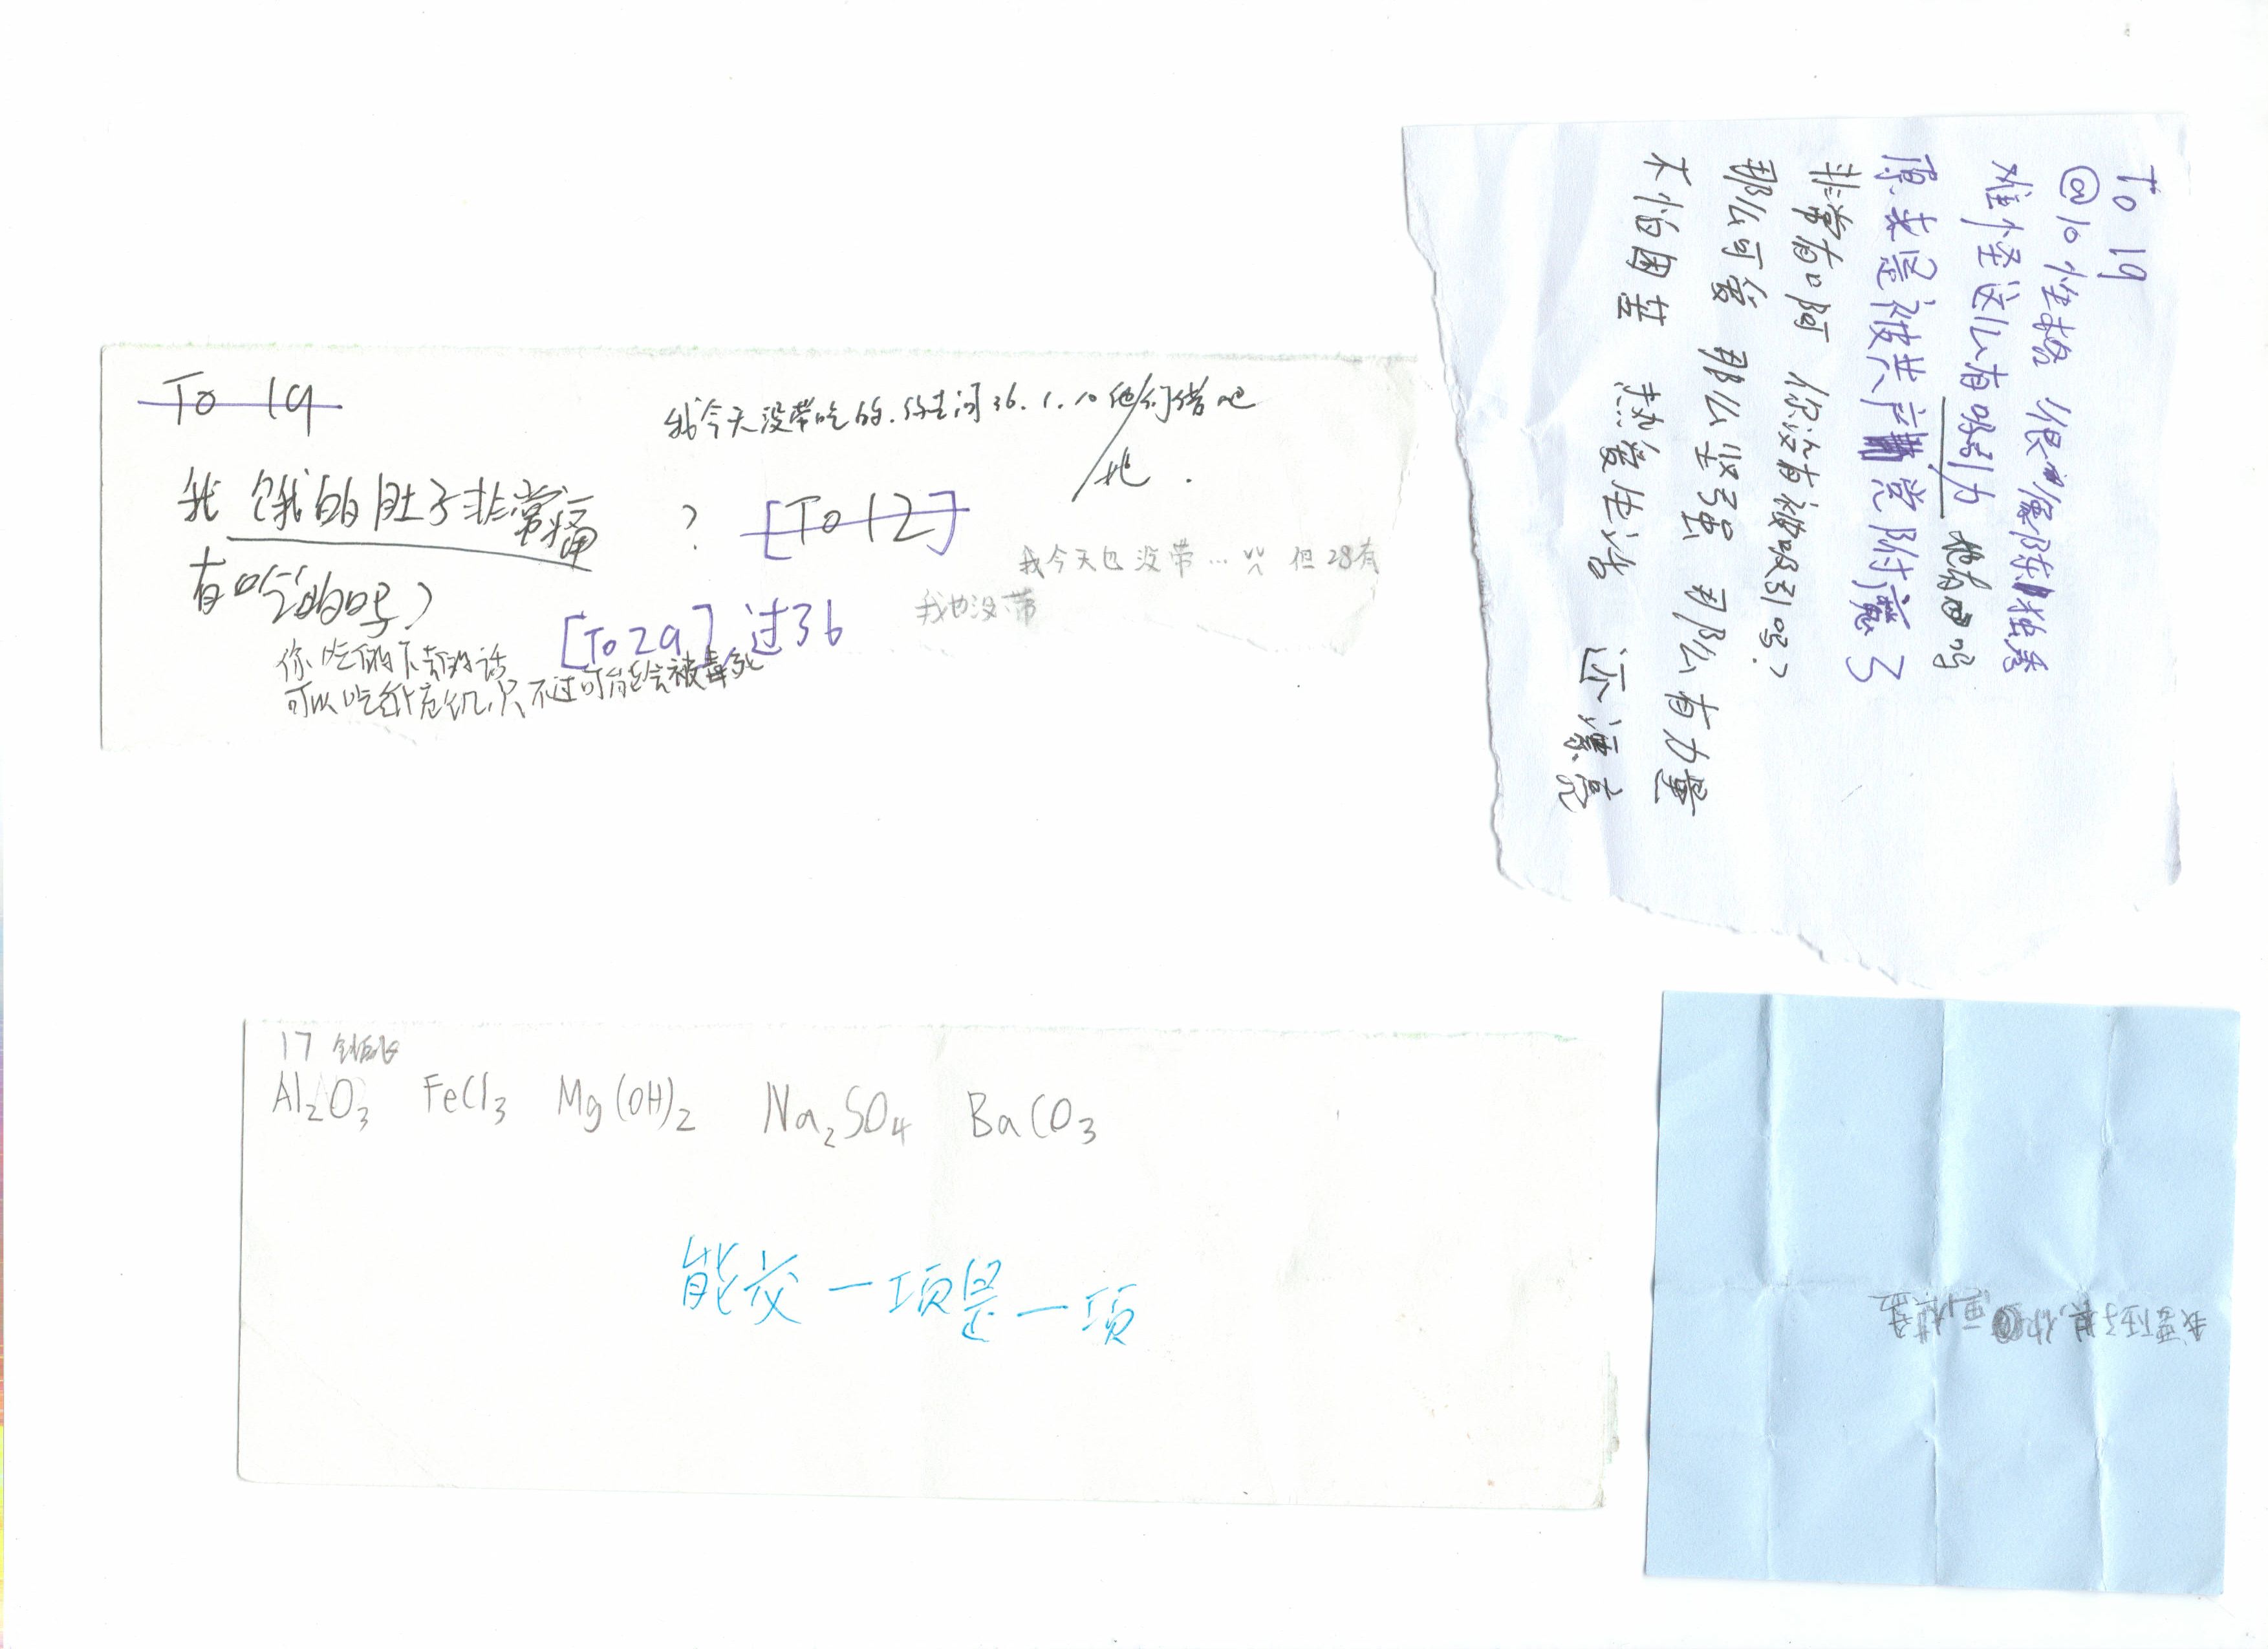 To 19
我今天没带吃的.你去问36.1.10他们借吧
我饿的肚子非常痛
? [To 12]
有吃的吗?
我今天也没带… 但28有
我也没带
[To 29] 过36
你吃的下去的话
可以吃纸充饥,只不过可能会被毒死
To 19
@10 性格 很
难怪这么有吸引力 他有吗
原来是被共产党附魔了
非常有啊 你没有被吸引吗?
那么可爱 那么坚强 那么有力量
不怕困苦 热爱生活 还漂亮
17
Al₂O₃ FeCl₃ Mg(OH)₂ Na₂SO₄ BaCO₃
能交一项是一项